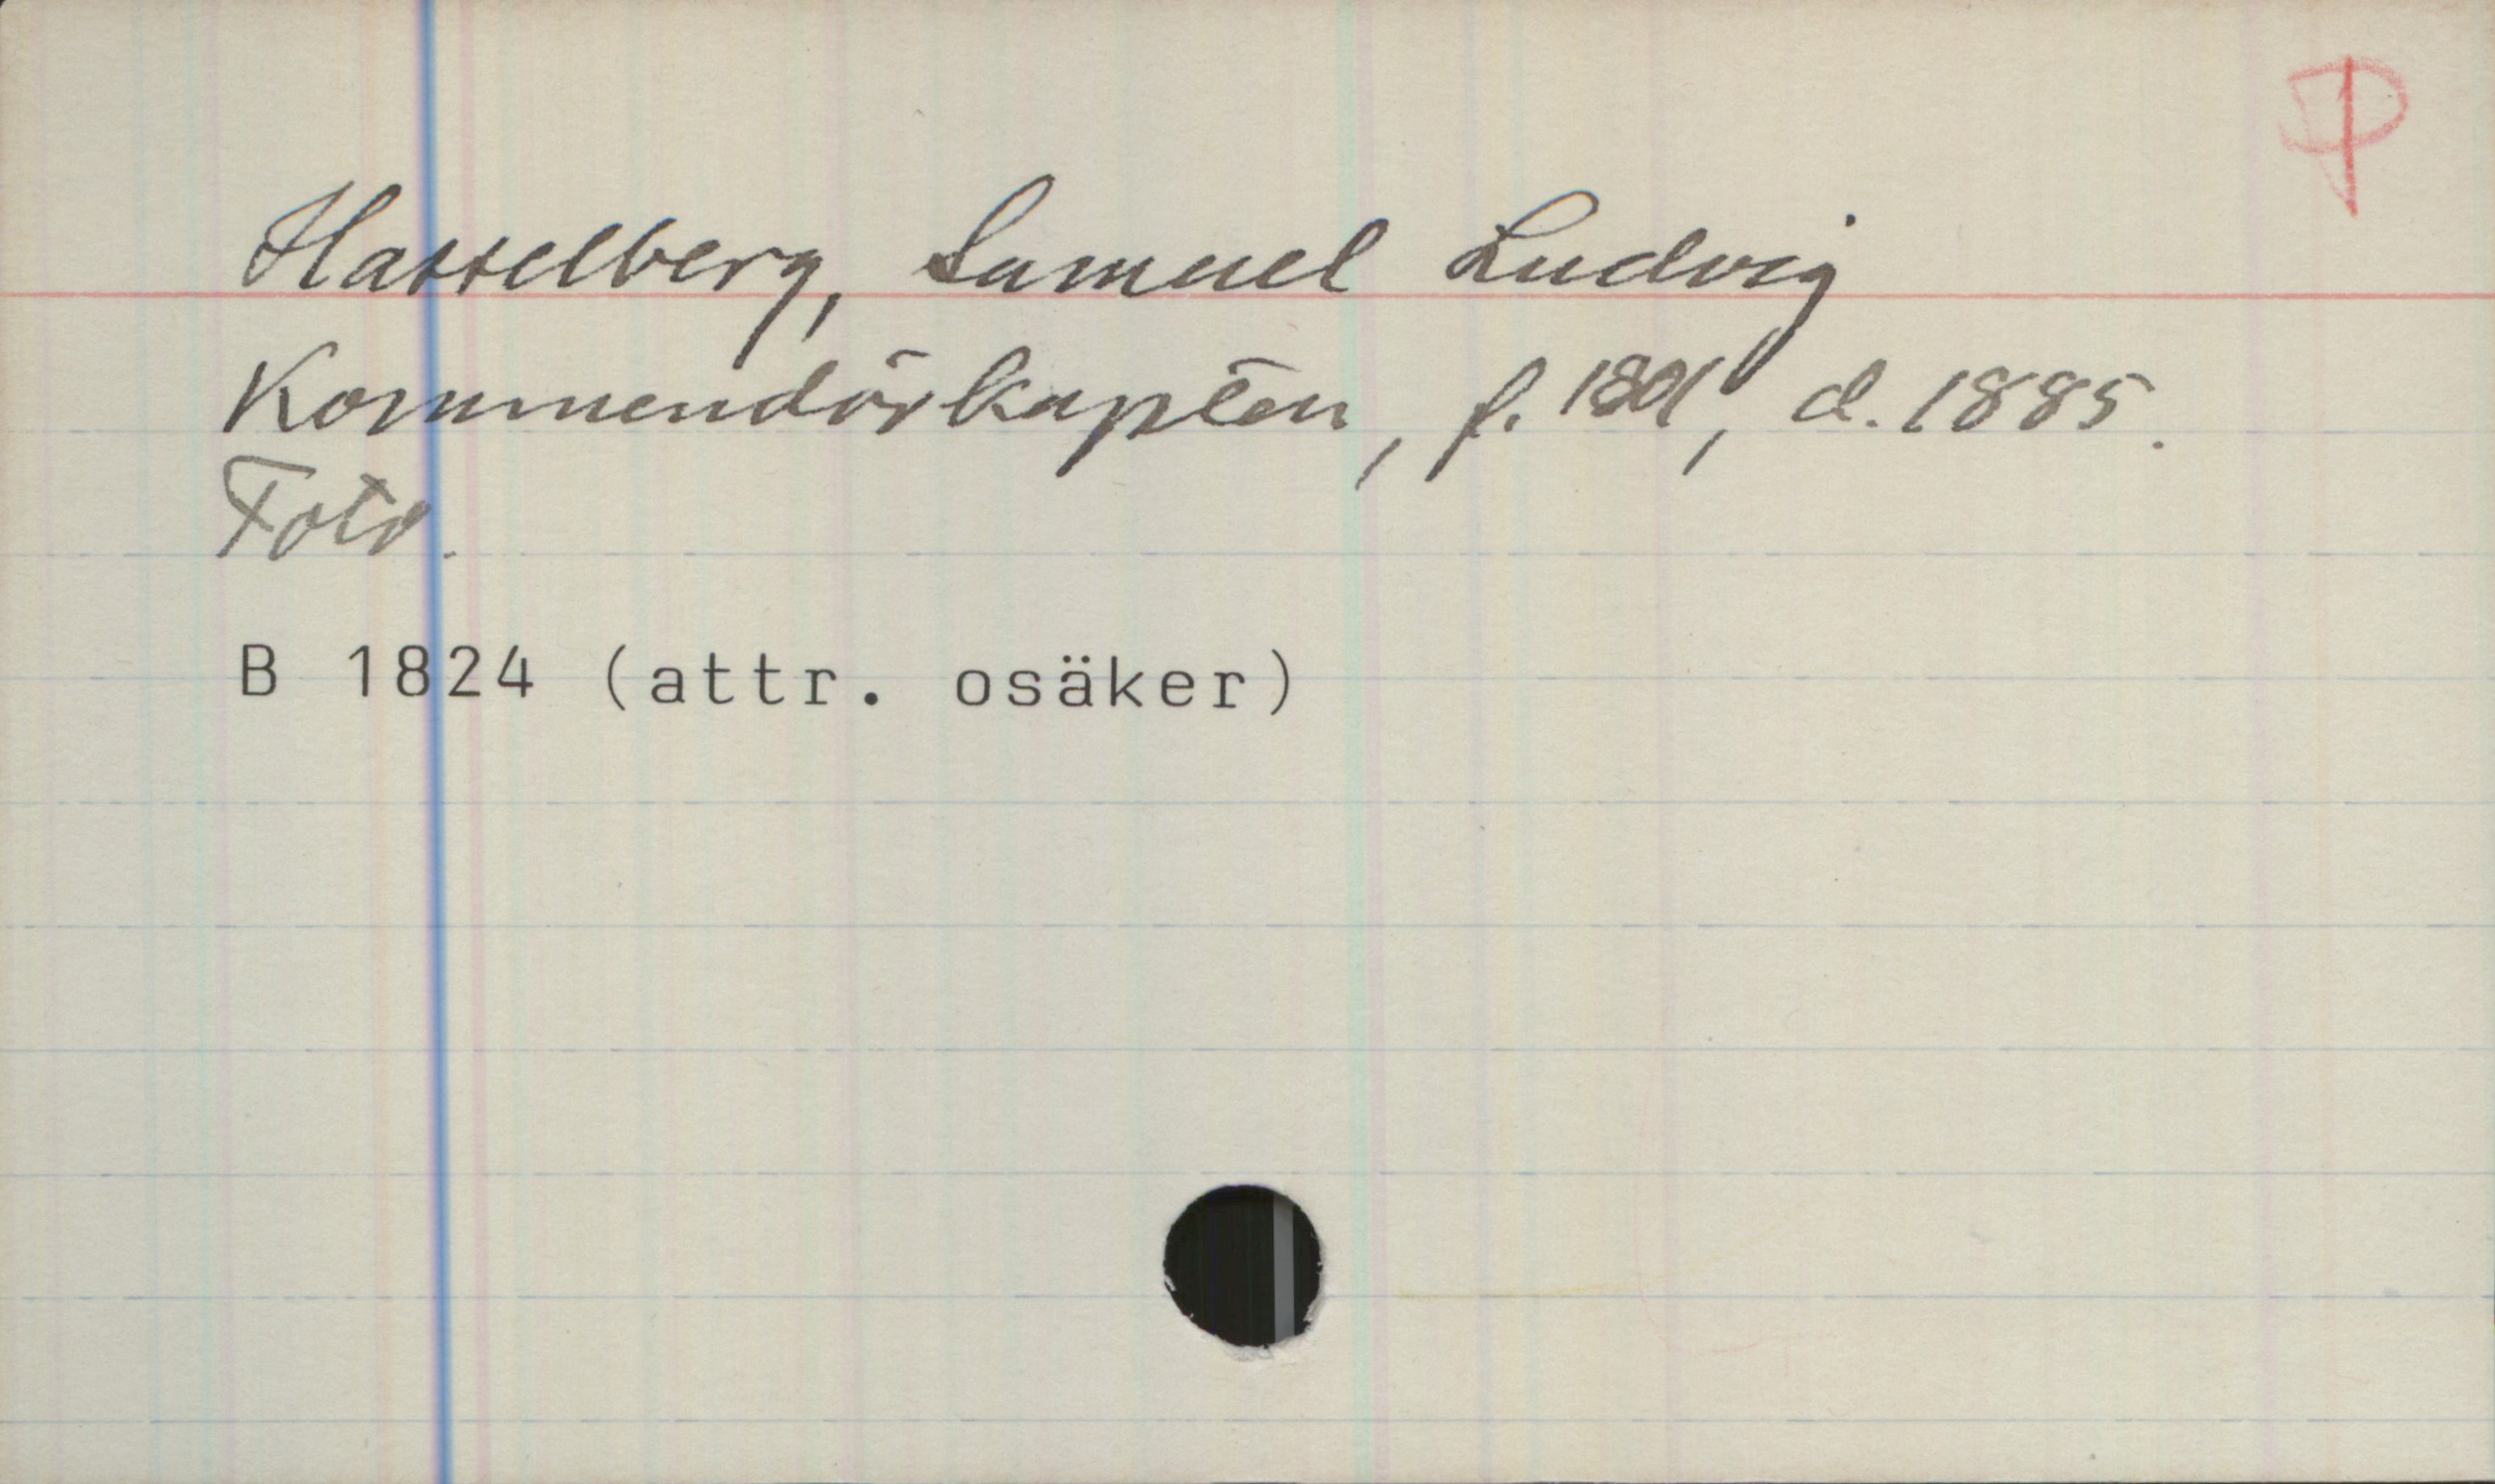 P
Hasselberg, Samuel Ludvig
Kommendörkapten, f. 1801, d. 1885.
Foto.
B 1824 (attr. osäker)